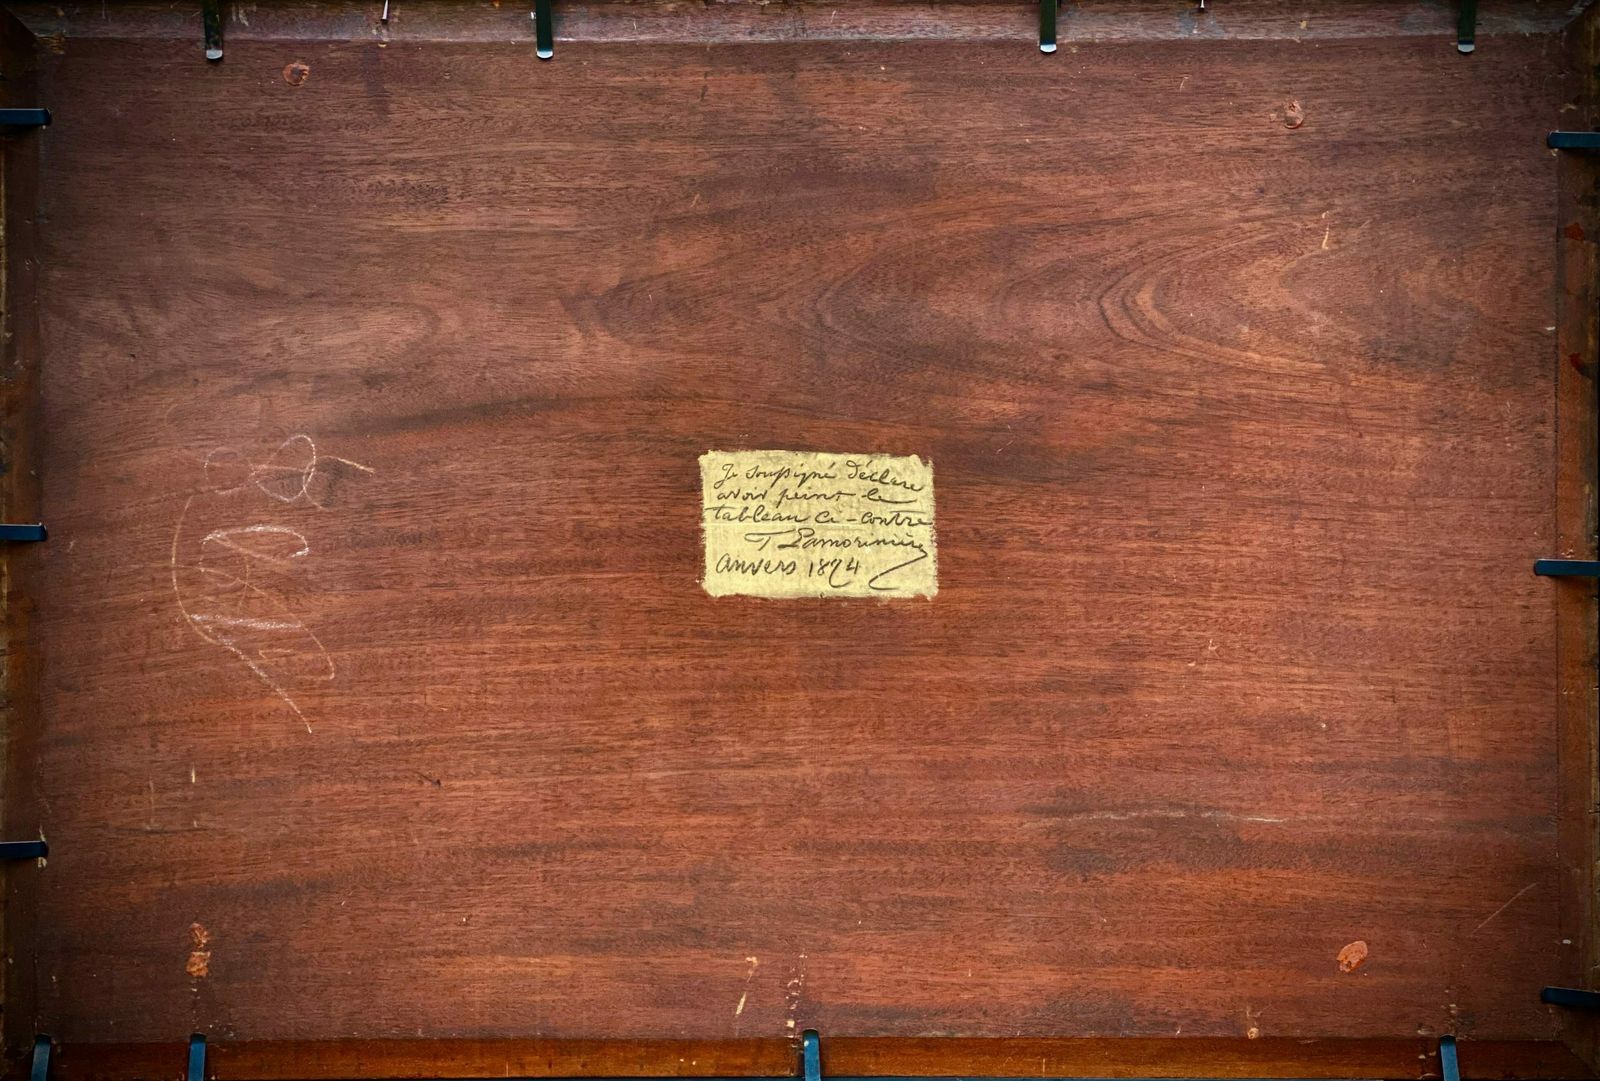 Je soussigné Déclare
avoir peint le
tableau ci-contre
F Lamorinière
Anvers 1874